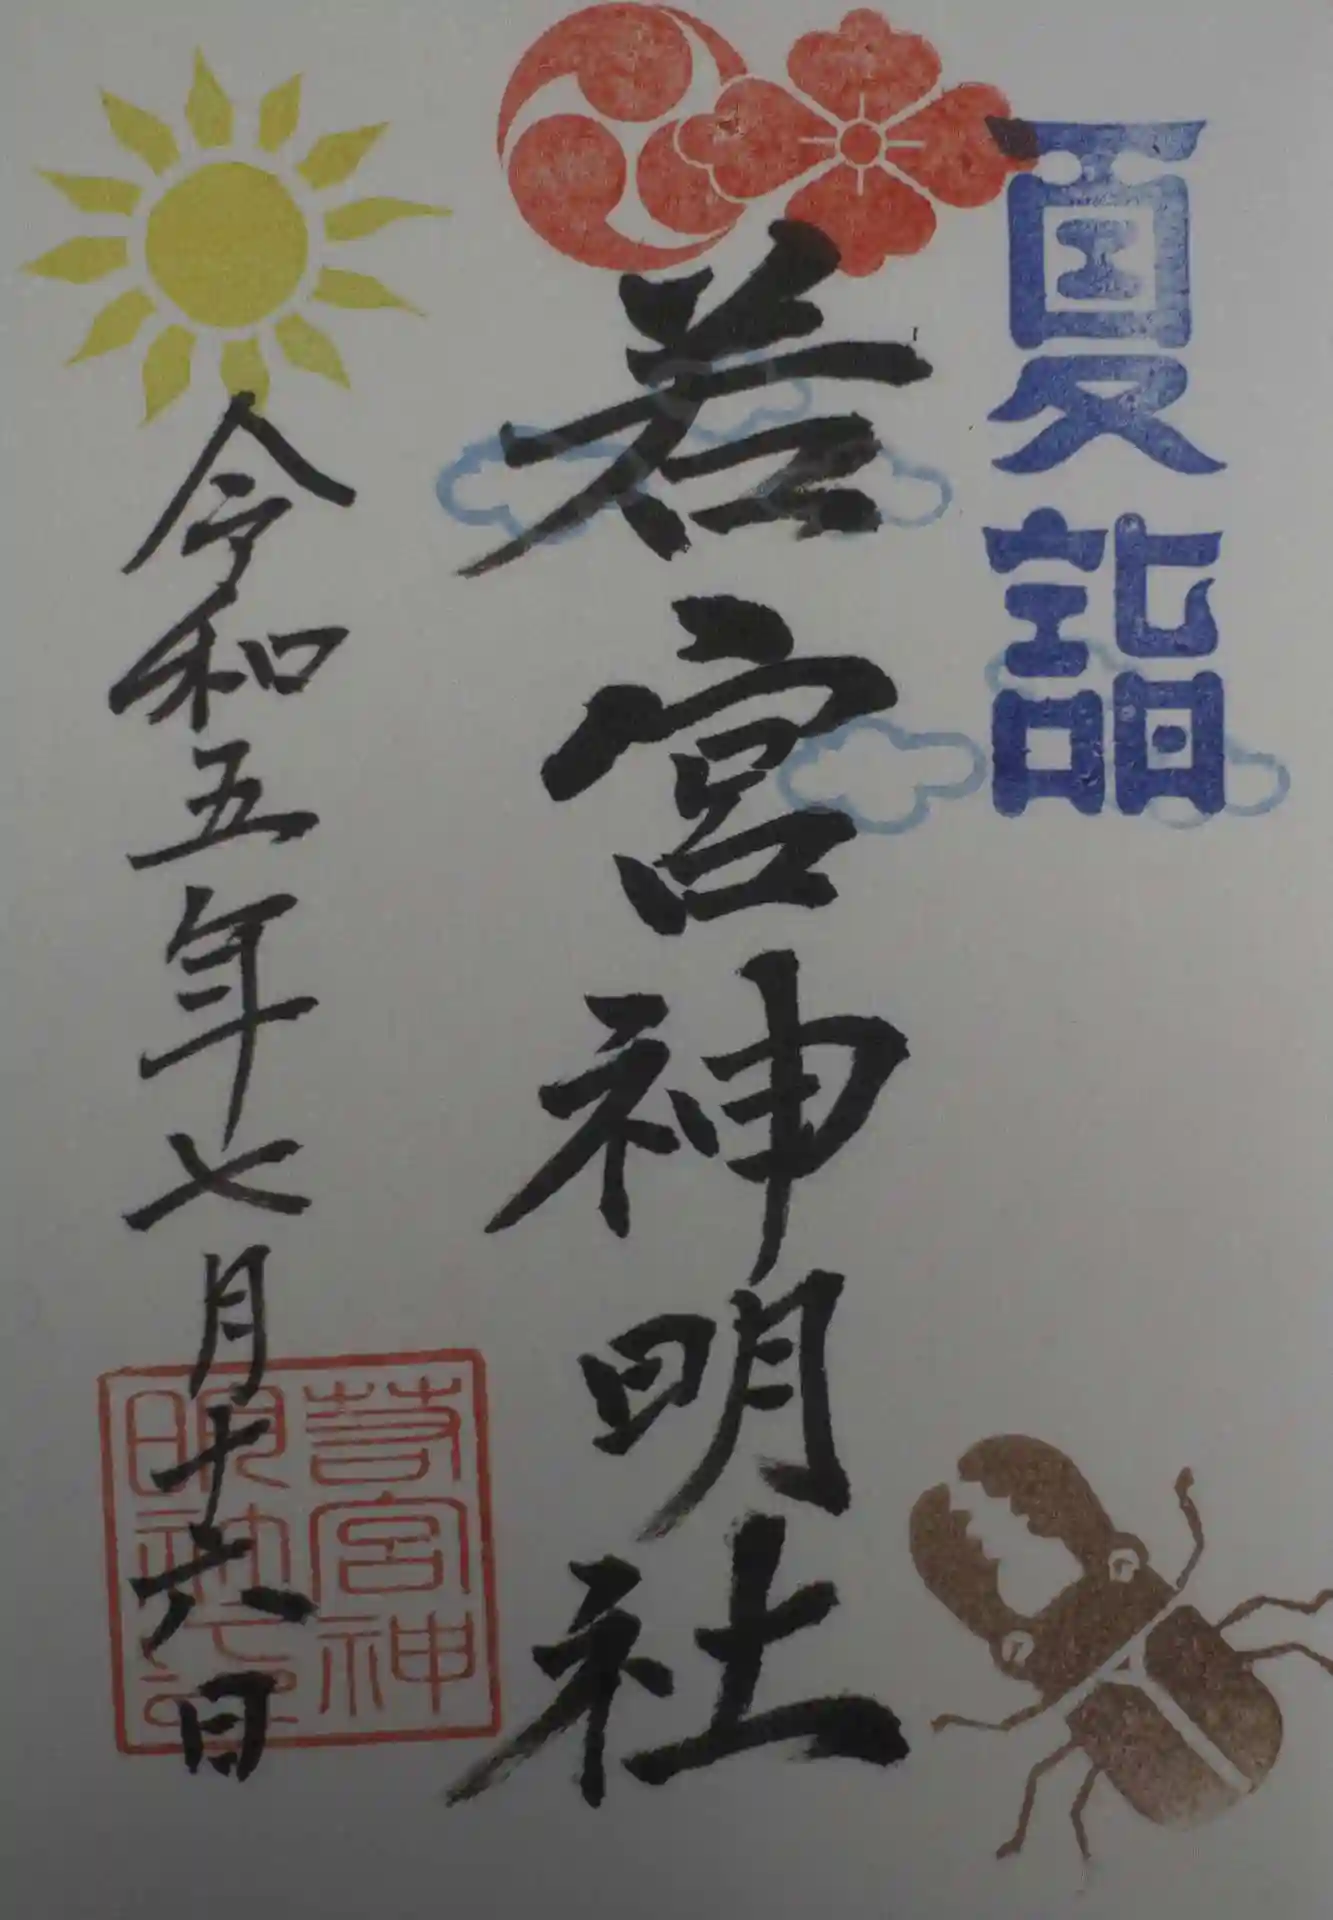 夏詣
若宮神明社
令和五年七月十六日
若宮神
明社之印